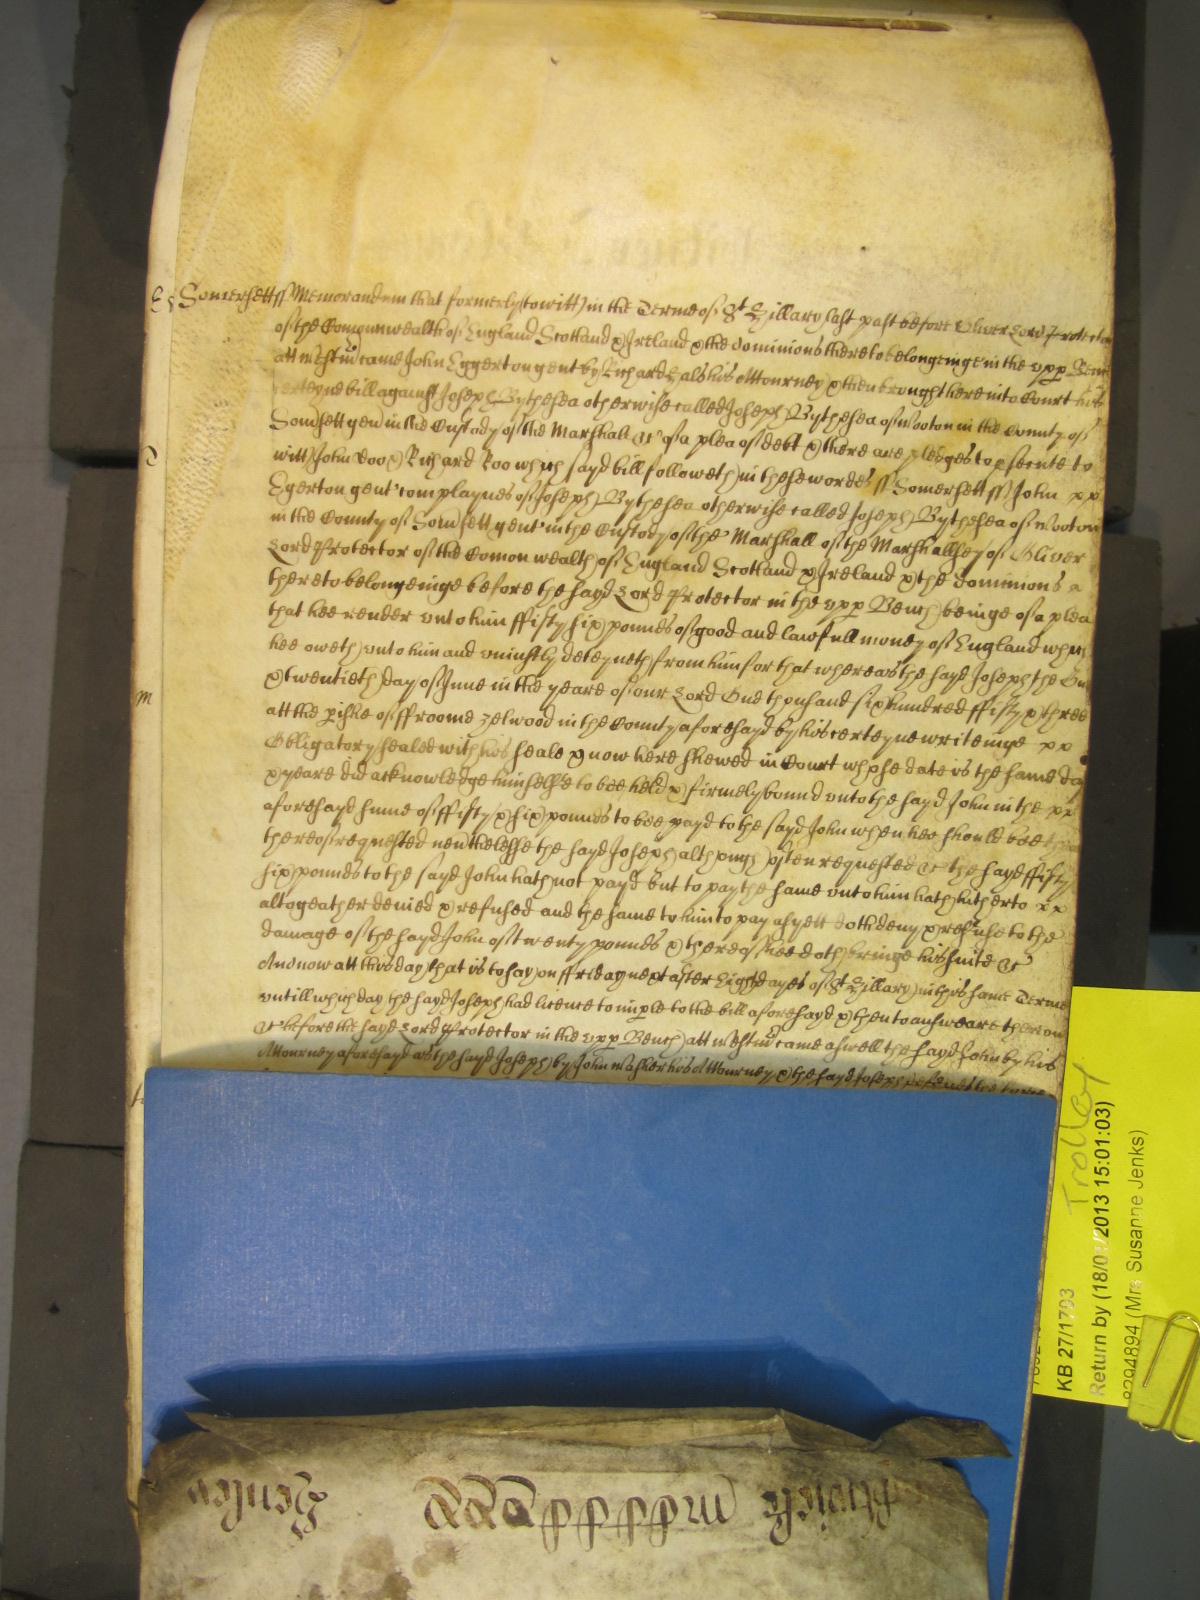 Somersett ss Memorandum that formerly (to witt) in the Terme of St Hillary last past before Oliver Lord Protector
of the Comonwealth of England Scotland & Ireland & the dominions thereto belongeinge in the upp Bench
att Westmr came John Eggerton gent by Richard Hals his Attourney & then brought here into Court his
certeyne bill against Joseph Bythesea otherwise called Joseph Bythesea of Wooton in the County of
Somsett gen in the Custody of the Marshall &c of a plea of debt & there are pledges to psecute to
witt John Doo & Richard Roo which sayd bill followeth in these wordes ss Somersett ss John
Egerton gent complaynes of Joseph Bythesea otherwise called Joseph Bythesea of Wooton
in the County of Somsett gent in the Custody of the Marshall of the Marshallsey of Oliver
Lord Protector of the Comon wealth of England Scotland & Ireland & the dominions
thereto belongeinge before the sayd Lord Protector in the upp Bench beinge of a plea
that hee render unto him ffifty six pounds of good and lawfull money of England which
hee oweth unto him and uniustly deteyneth from him for that whereas the sayd Joseph the One
& twentieth day of June in the yeare of our Lord One thousand six hundred ffifty & three
att the pishe of ffroome Zelwood in the County aforesayd by his certeyne writeinge
Obligatory sealed with his seale & now here shewed in Court whose date is the same day
& yeare did acknowledge himselfe to bee held & firmely bound unto the sayd John in the
aforesayd summe of ffifty & six pounds to bee payd to the sayd John when hee should bee
thereof requested nevthelesse the sayd Joseph although often requested &c the sayd ffifty
six pounds to the sayd John hath not payd but to pay the same unto him hath hitherto
altogeather denied & refused and the same to him to pay as yett doth deny & refuse to the
damage of the sayd John of twenty pounds & thereof hee doth bringe his suite &c
And now att this day that is to say on ffriday next after Eight dayes of St Hillary in this same Terme
untill which day the sayd Joseph had licence to imple to the bill aforesayd & then to answeare thereon
&c before the sayd Lord Protector in the upp Bench att Westmr came aswell the sayd John by his
Attourney aforesayd as the sayd Joseph by John Walker his Attourney & the sayd Joseph
Trolley
KB 27/1793
Return by (18/0 /2013 15:01:03)
8294894 (Mrs Susanne Jenks)